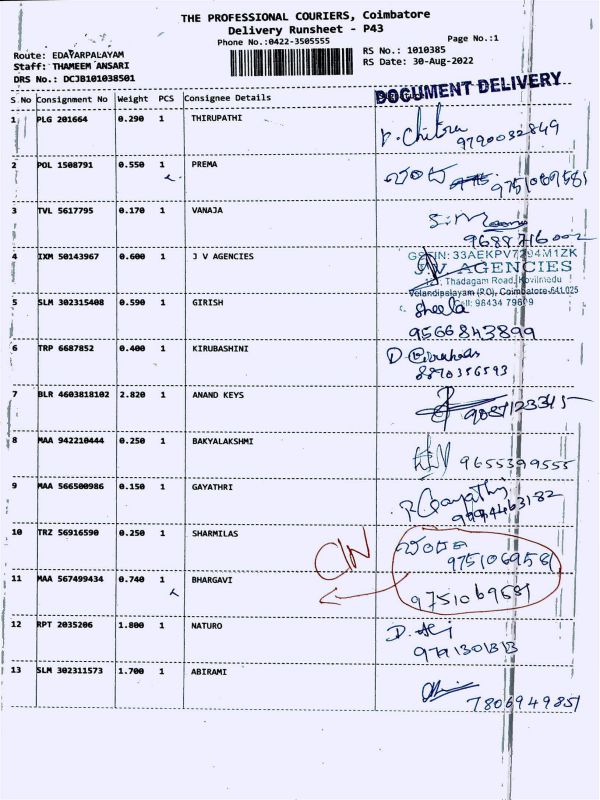 THE PROFESSIONAL COURIERS, Coimbatore
Delivery Runsheet - P43
Phone No.:0422-3505555
Page No.:1
Route: EDAYARPALAYAM
RS No.: 1010385
Staff: THAMEEM ANSARI
RS Date: 30-Aug-2022
DRS No.: DCJB101038501
DOCUMENT DELIVERY
S.No Consignment No Weight PCS Consignee Details
1 PLG 201664 0.290 1 THIRUPATHI
9790032849
2 POL 1508791 0.550 1 PREMA
9751069581
3 TVL 5617795 0.170 1 VANAJA
9688716002
4 IXM 50143967 0.600 1 J V AGENCIES
J.V. AGENCIES
Thadagam Road, Kovilmedu
Velandipalayam (P.O), Coimbatore-641025
5 SLM 302315408 0.590 1 GIRISH
Cell: 98434 79609
Sheela
9566843899
6 TRP 6687852 0.400 1 KIRUBASHINI
8870356593
7 BLR 4603818102 2.820 1 ANAND KEYS
9087123345
8 MAA 942210444 0.250 1 BAKYALAKSHMI
9655399555
9 MAA 566500986 0.150 1 GAYATHRI
R Gayathri
10 TRZ 56916590 0.250 1 SHARMILAS
9751069581
11 MAA 567499434 0.740 1 BHARGAVI
9751069581
12 RPT 2035206 1.800 1 NATURO
13 SLM 302311573 1.700 1 ABIRAMI
7806949851